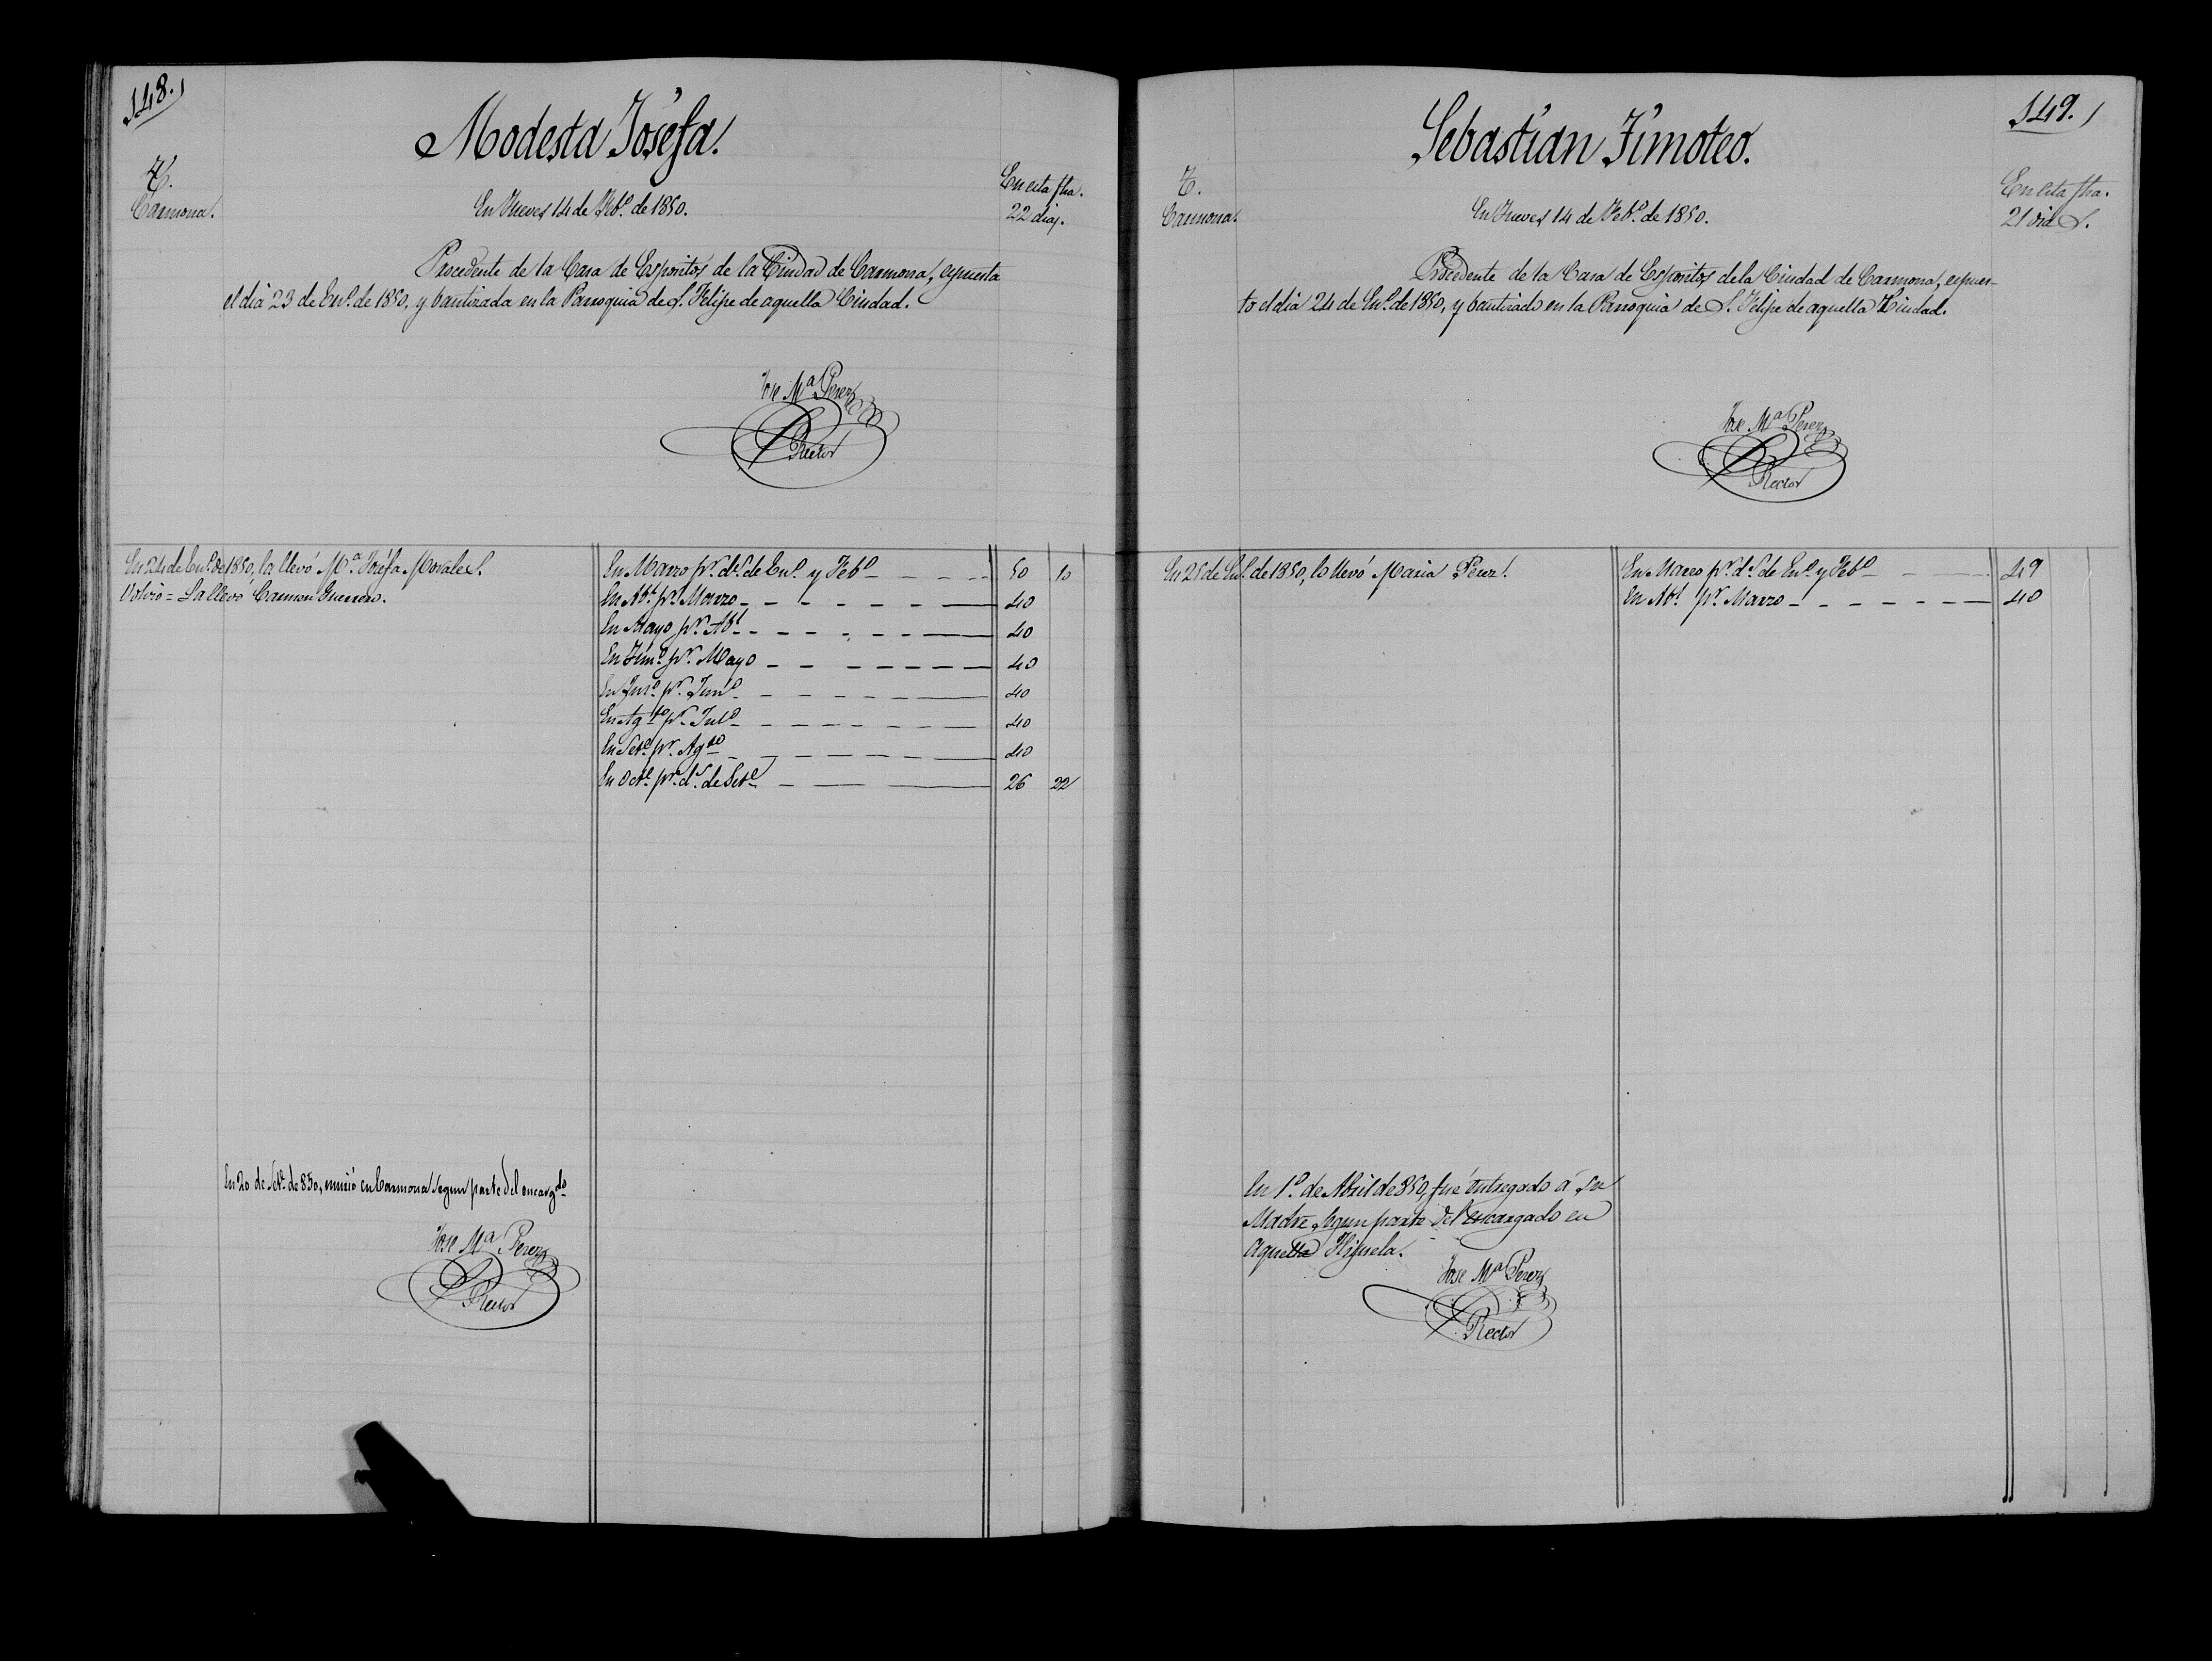 148.
Modesta Josefa.
H.
Carmona.
En Jueves 14 de Feb.º de 1850.
En esta fha.
22 dias.
Procedente de la Casa de Espositos de la Ciudad de Carmona, espuesta
el dia 23 de En.º de 1850, y bautizada en la Parroquia de S. Felipe de aquella Ciudad.
Jose M.ª Perez
Rector
En 24 de En.º de 1850, la llevó M.ª Josefa Morales.
Volvio = La llevó Carmen Guerrero.
En Marzo p.r d.s de En.º y Feb.º 50 10
En Ab.l p.r Marzo 40
En Mayo p.r Ab.l 40
En Jun.º p.r Mayo 40
En Jul.º p.r Jun.º 40
En Ag.to p.r Jul.º 40
En Set.e p.r Ag.to 40
En Oct.e p.r d.s de Set.e 26 22
En 20 de Set.e de 850, murió en Carmona segun parte del encarg.do
Jose M.ª Perez
Rector
149.
Sebastian Timoteo.
H.
Carmona.
En Jueves 14 de Feb.º de 1850.
En esta fha.
21 dias.
Procedente de la Casa de Espositos de la Ciudad de Carmona, espues-
to el dia 24 de En.º de 1850, y bautizado en la Parroquia de S. Felipe de aquella Ciudad.
Jose M.ª Perez
Rector
En 25 de En.º de 1850, lo llevó Maria Perez.
En Marzo p.r d.s de En.º y Feb.º 49
En Ab.l p.r Marzo 40
En 1.º de Abril de 850, fué entregado á su
Madre, segun parte del encargado en
aquella Hijuela.
Jose M.ª Perez
Rector